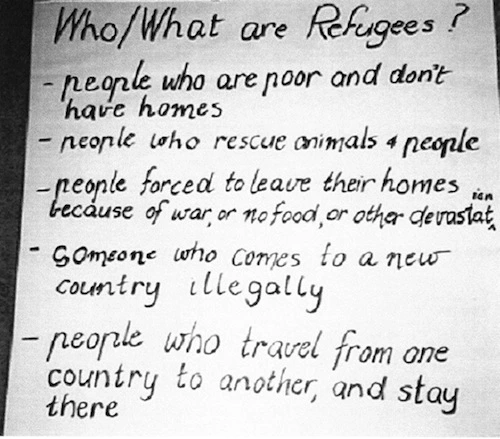 Who/What are Refugees?
- people who are poor and don't
have homes
- people who rescue animals & people
- people forced to leave their homes
because of war, or no food, or other devastation
- someone who comes to a new
country illegally
- people who travel from one
country to another, and stay
there